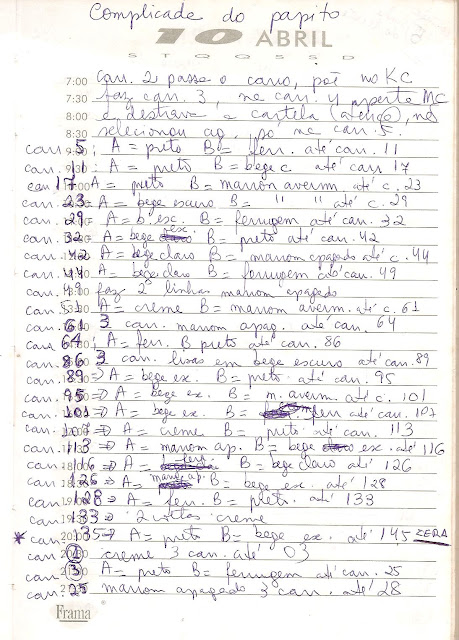 Complicade do papito
10 ABRIL
S T Q Q S S D
7:00 carr. 2 passa o carro, põe no KC
7:30 faz carr. 3, na carr. 4 aperta MC
8:00 e destrava a cartela (atenção), não
8:30 selecionou ag, só na carr. 5.
carr. 5 A = preto B = ferr. até carr. 11
carr. 11 A = preto B = bege c. até carr 17
carr 17 A = preto B = marrom averm até c. 23
carr. 23 A = bege escuro B = " " até c. 29
carr. 29 A = b. esc. B = ferrugem até carr. 32
carr. 32 A = bege esc. B = preto até carr. 42
carr. 42 A = bege claro B = marrom apagado até c. 44
carr. 44 A = bege claro B = ferrugem até carr. 49
carr. 49 faz 2 linhas marrom apagado
carr. 51 A = creme B = marrom averm. até c. 61
carr. 61 3 carr. marrom apag. até carr. 64
carr. 64 A = ferr. B preto até carr. 86
carr. 86 3 carr. lisas em bege escuro até carr. 89
carr. 89 ⇒ A = bege ex. B = preto até carr. 95
carr. 95 ⇒ A = bege ex. B = m. averm. até c. 101
carr. 101 ⇒ A = bege ex. B = ferr até carr. 107
carr. 107 ⇒ A = creme B = preto até carr. 113
carr. 113 ⇒ A = marrom ap. B = bege ex. até 116
carr. 116 ⇒ A = ferr. B = bege claro até 126
carr. 126 ⇒ A = marr. ap. B = bege esc. até 128
carr. 128 ⇒ A = ferr. B = preto. até 133
carr. 133 ⇒ 2 voltas creme
* carr. 135 ⇒ A = preto B = bege ex. até 145 ZERA
carr. creme 3 carr. até 03
carr 3 A = preto B = ferrugem até carr. 25
carr. 25 marrom apagado 3 carr. até 28
Frama